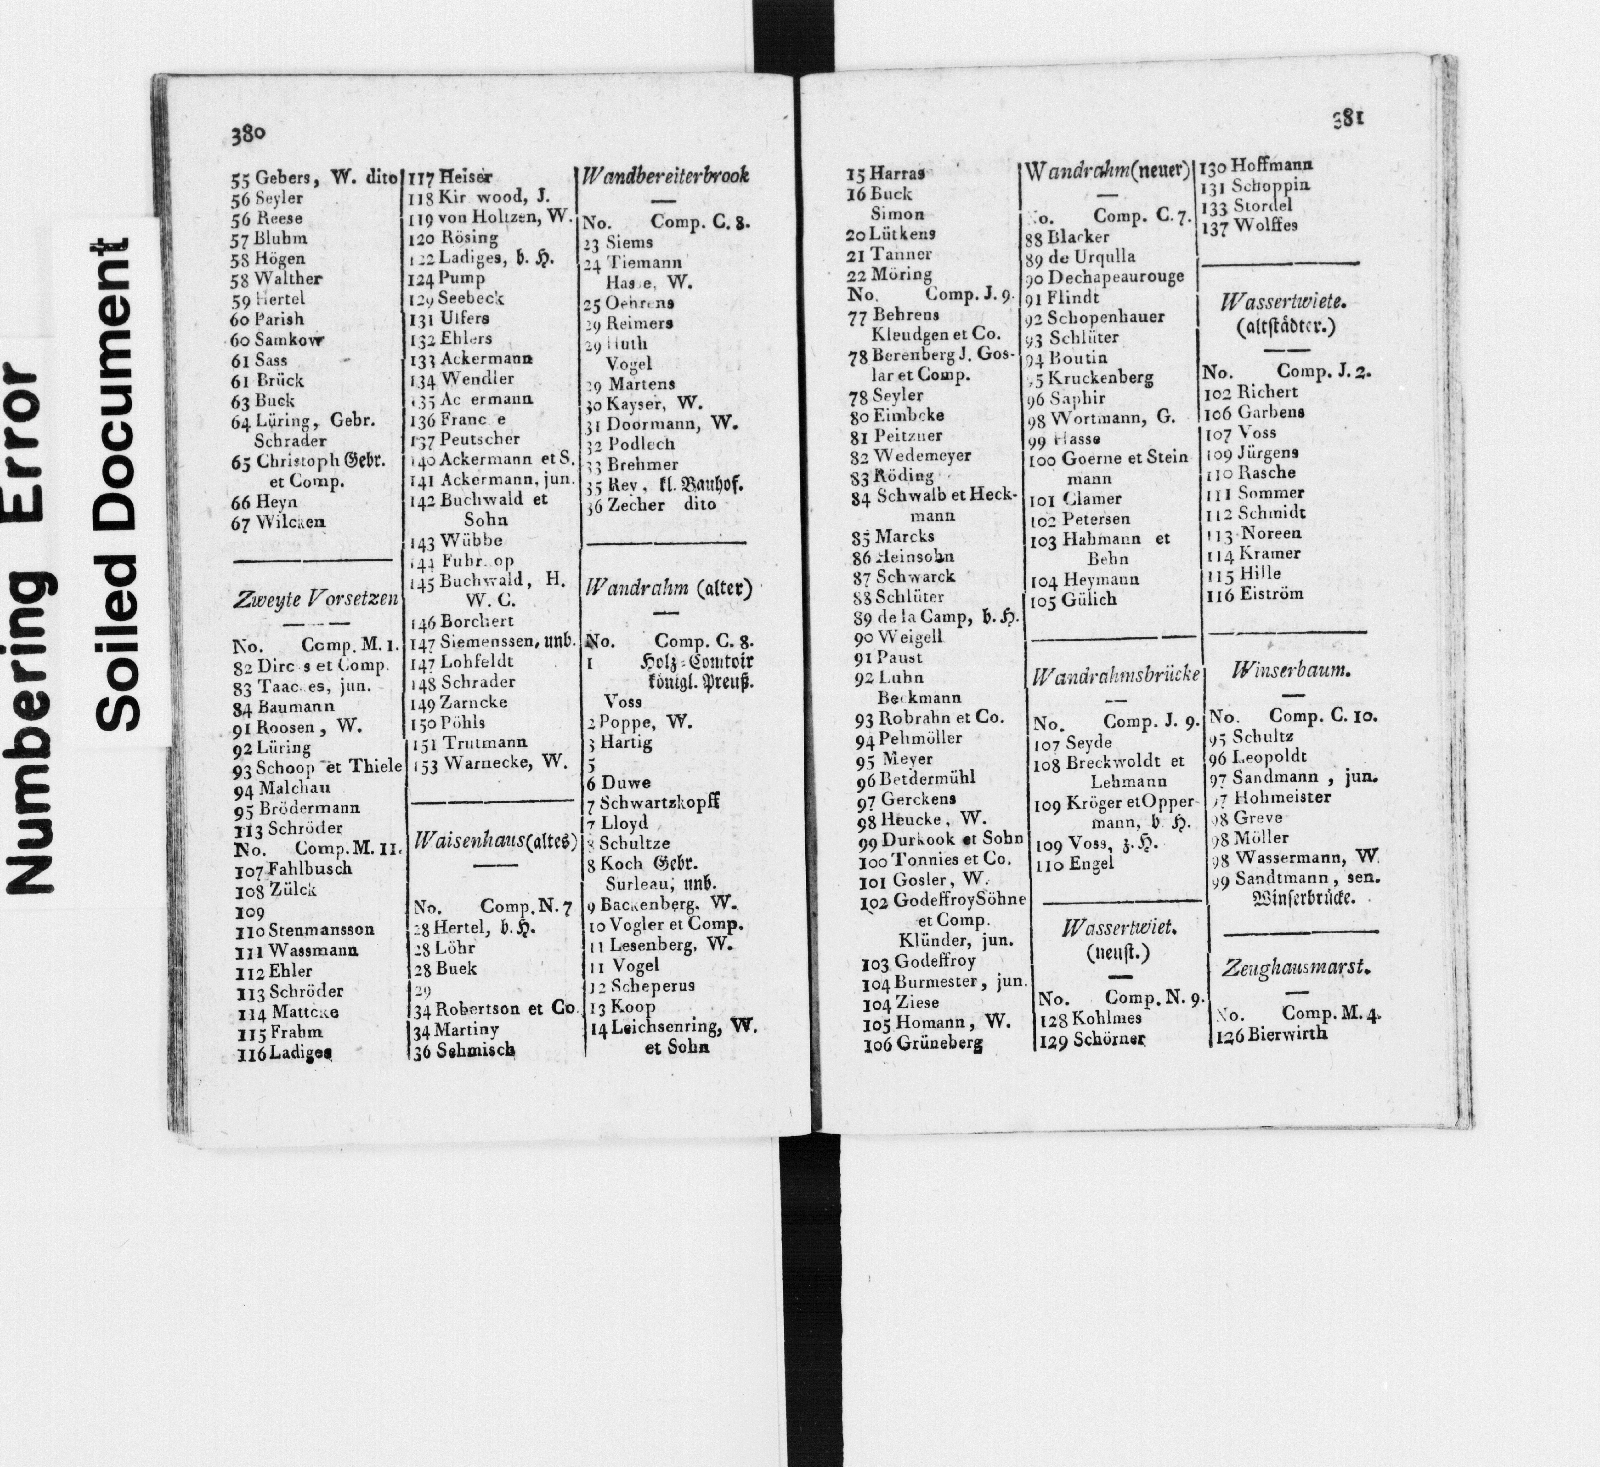 Numbering Error
Soiled Document
380
55 Gebers, W. dito
56 Seyler
56 Reese
57 Bluhm
58 Högen
58 Walther
59 Hertel
60 Parish
60 Samkow
61 Sass
61 Brück
63 Buck
64 Lüring, Gebr.
Schrader
65 Christoph Gebr.
et Comp.
66 Heyn
67 Wilcken
Zweyte Vorsetzen
No. Comp. M. 1.
82 Dirc s et Comp.
83 Taac es, jun.
84 Baumann
91 Roosen, W.
92 Lüring
93 Schoop et Thiele
94 Malchau
95 Brödermann
113 Schröder
No. Comp. M. 11.
107 Fahlbusch
108 Zülck
109
110 Stenmansson
111 Wassmann
112 Ehler
113 Schröder
114 Mattcke
115 Frahm
116 Ladiges
117 Heiser
118 Kir wood, J.
119 von Holtzen, W.
120 Rösing
122 Ladiges, b. H.
124 Pump
129 Seebeck
131 Ulfers
132 Ehlers
133 Ackermann
134 Wendler
135 Ac ermann
136 Franc e
137 Peutscher
140 Ackermann et S.
141 Ackermann, jun.
142 Buchwald et
Sohn
143 Wübbe
144 Fuhr op
145 Buchwald, H.
W. C.
146 Borchert
147 Siemenssen, unb.
147 Lohfeldt
148 Schrader
149 Zarncke
150 Pöhls
151 Trutmann
153 Warnecke, W.
Waisenhaus (altes)
No. Comp. N. 7
28 Hertel, b. H.
28 Löhr
28 Buek
29
34 Robertson et Co.
34 Martiny
36 Sehmisch
Wandbereiterbrook
No. Comp. C. 8.
23 Siems
24 Tiemann
Hasse, W.
25 Oehrens
29 Reimers
29 Huth
Vogel
29 Martens
30 Kayser, W.
31 Doormann, W.
32 Podlech
33 Brehmer
35 Rev. kl. Bauhof.
36 Zecher dito
Wandrahm (alter)
No. Comp. C. 8.
1 Holz-Comtoir
königl. Preuß.
Voss
2 Poppe, W.
3 Hartig
5
6 Duwe
7 Schwartzkopff
7 Lloyd
8 Schultze
8 Koch Gebr.
Surleau, unb.
9 Backenberg. W.
10 Vogler et Comp.
11 Lesenberg, W.
11 Vogel
12 Scheperus
13 Koop
14 Leichsenring, W.
et Sohn
381
15 Harras
16 Buck
Simon
20 Lütkens
21 Tanner
22 Möring
No. Comp. J. 9.
77 Behrens
Kleudgen et Co.
78 Berenberg J. Gos-
lar et Comp.
78 Seyler
80 Eimbcke
81 Peitzner
82 Wedemeyer
83 Röding
84 Schwalb et Heck-
mann
85 Marcks
86 Heinsohn
87 Schwarck
88 Schlüter
89 de la Camp, b. H.
90 Weigell
91 Paust
92 Luhn
Beckmann
93 Robrahn et Co.
94 Pehmöller
95 Meyer
96 Betdermühl
97 Gerckens
98 Heucke, W.
99 Durkook et Sohn
100 Tonnies et Co.
101 Gosler, W.
102 Godeffroy Söhne
et Comp.
Klünder, jun.
103 Godeffroy
104 Burmester, jun.
104 Ziese
105 Homann, W.
106 Grüneberg
Wandrahm (neuer)
No. Comp. C. 7.
88 Blacker
89 de Urqulla
90 Dechapeaurouge
91 Flindt
92 Schopenhauer
93 Schlüter
94 Boutin
95 Kruckenberg
96 Saphir
98 Wortmann, G.
99 Hasse
100 Goerne et Stein
mann
101 Clamer
102 Petersen
103 Hahmann et
Behn
104 Heymann
105 Gülich
Wandrahmsbrücke
No. Comp. J. 9.
107 Seyde
108 Breckwoldt et
Lehmann
109 Kröger et Opper-
mann, b. H.
109 Voss, z. H.
110 Engel
Wassertwiet.
(neust.)
No. Comp. N. 9.
128 Kohlmes
129 Schörner
130 Hoffmann
131 Schoppin
133 Stordel
137 Wolffes
Wassertwiete.
(altstädter.)
No. Comp. J. 2.
102 Richert
106 Garbens
107 Voss
109 Jürgens
110 Rasche
111 Sommer
112 Schmidt
113 Noreen
114 Kramer
115 Hille
116 Eiström
Winserbaum.
No. Comp. C. 10.
95 Schultz
96 Leopoldt
97 Sandmann, jun.
97 Hohmeister
98 Greve
98 Möller
98 Wassermann, W.
99 Sandtmann, sen.
Winserbrücke.
Zeughausmarst.
No. Comp. M. 4.
126 Bierwirth